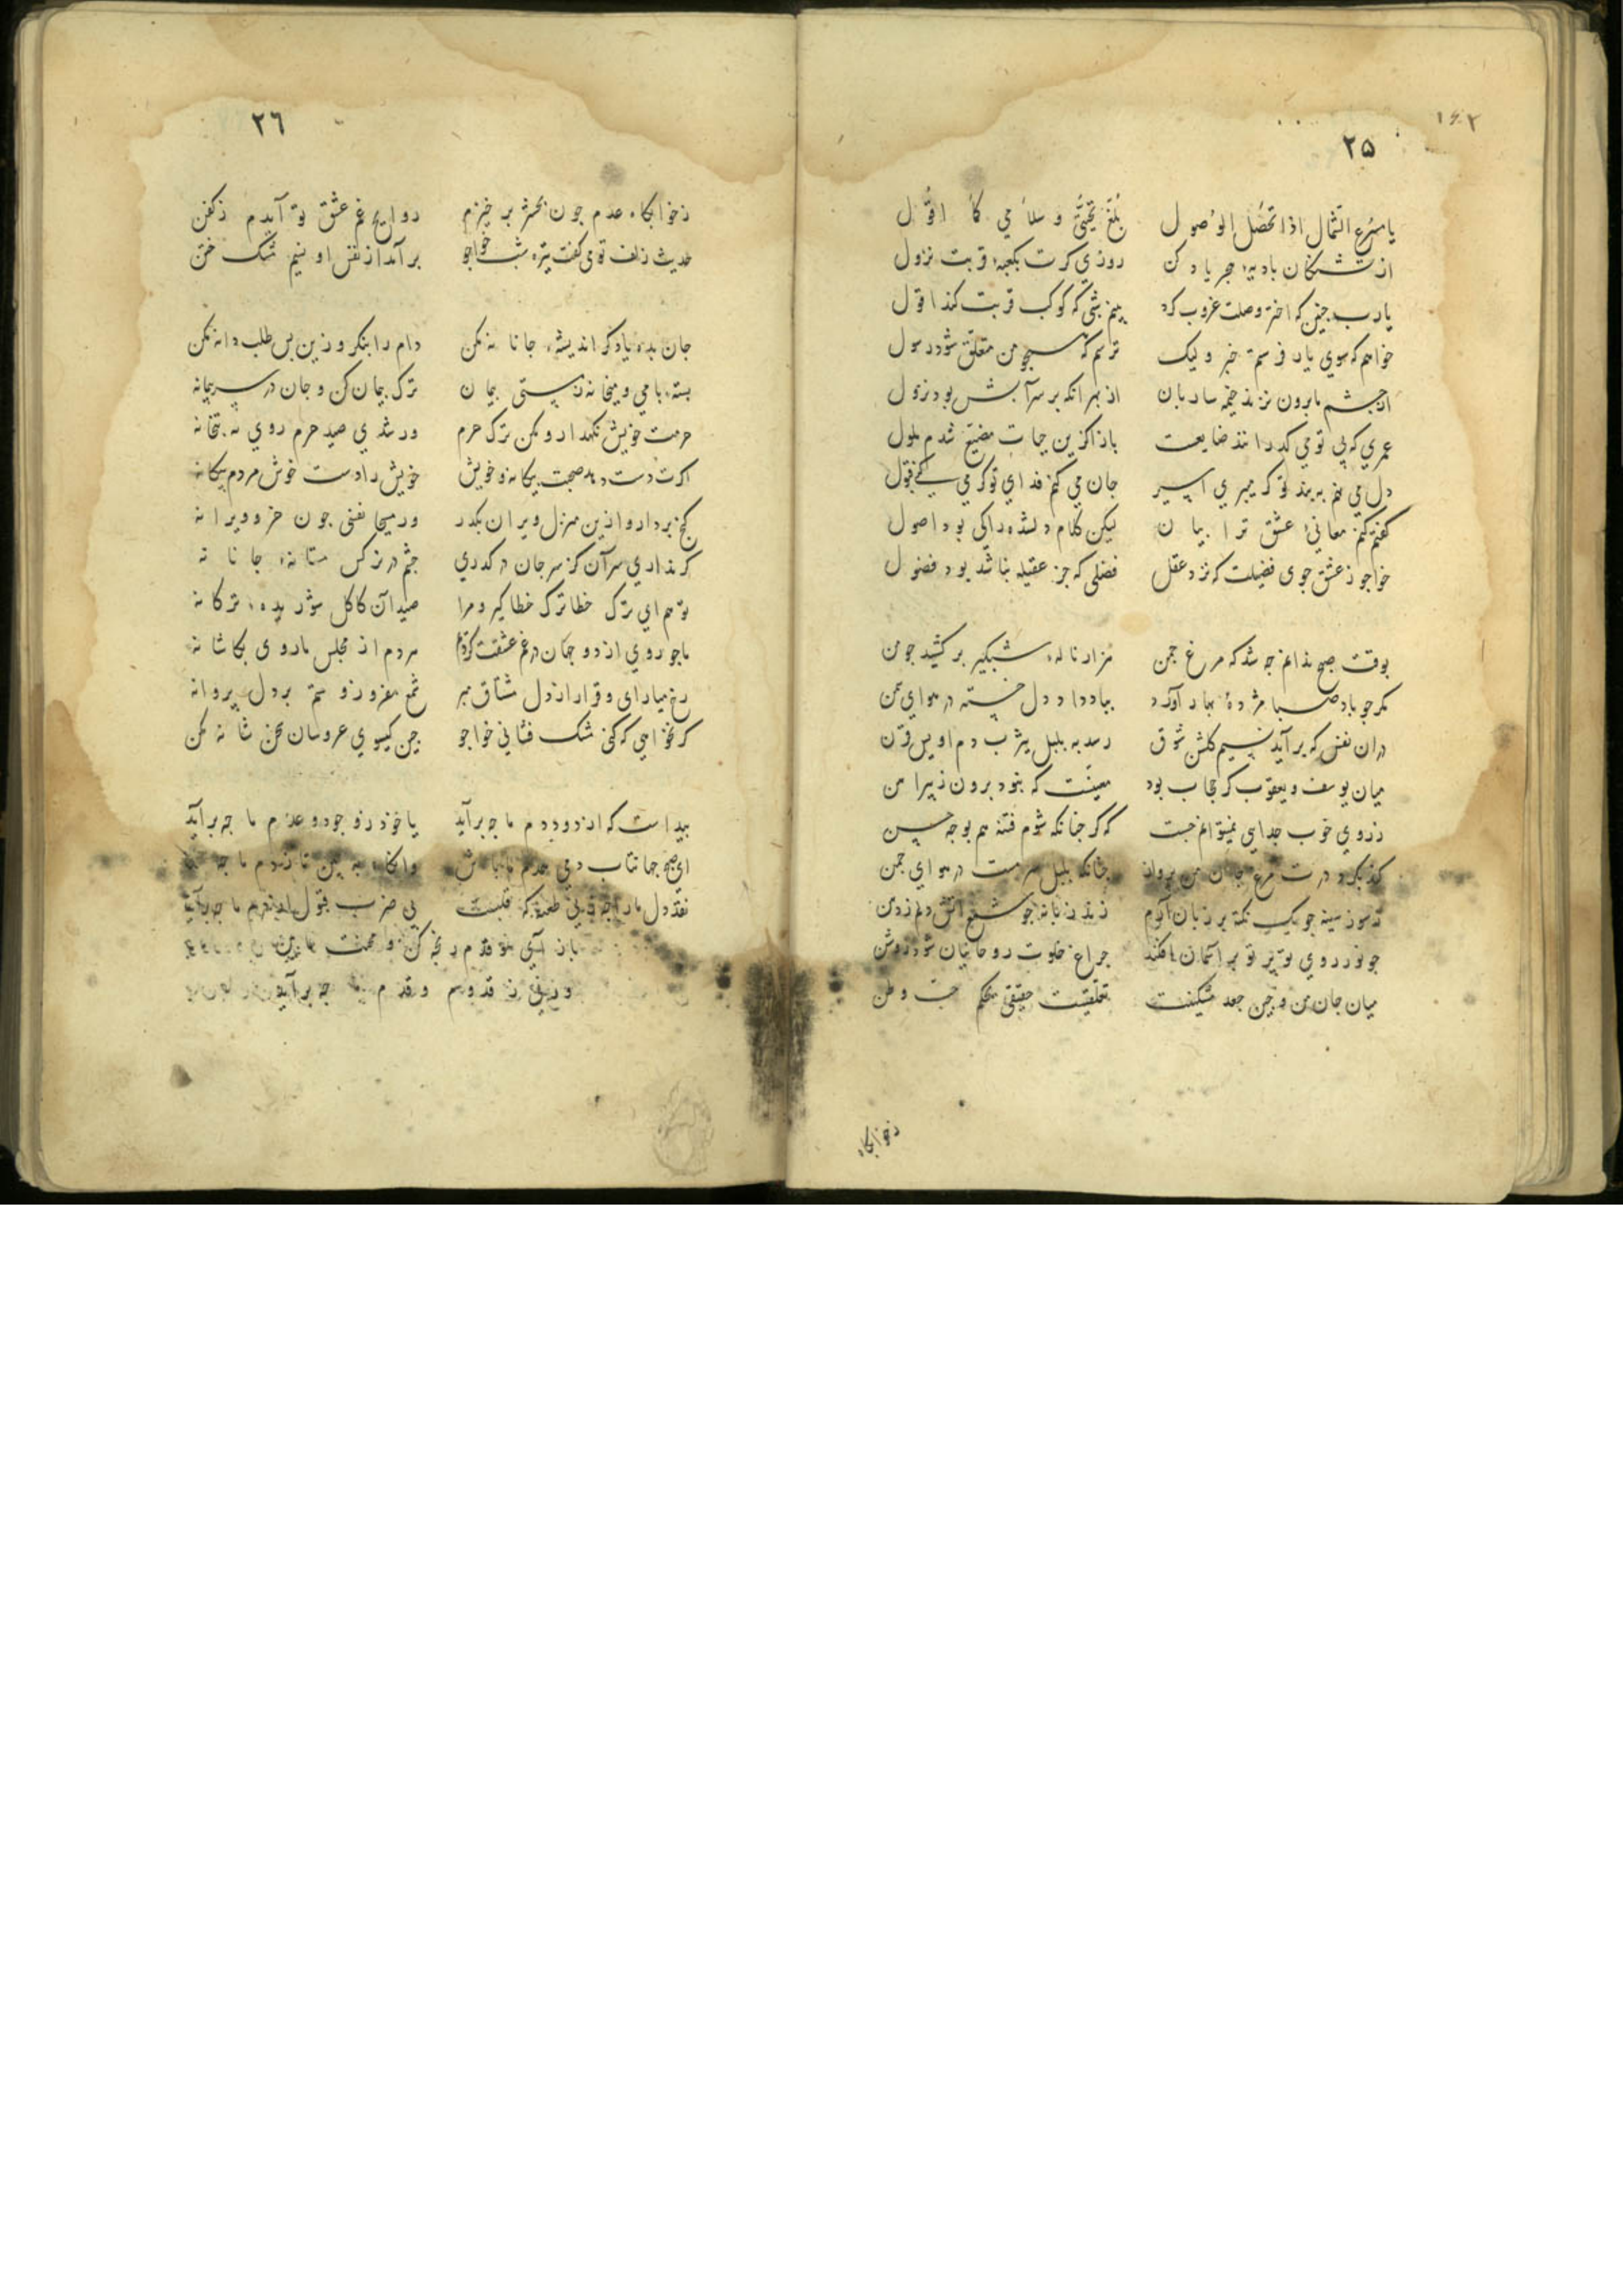 ۲۵
یا مسرع الشمال اذا تحصل الوصول بلغ تحیتی و سلامی کما اقول
از تشنکان بادیهٔ هجر یاد کن روزی کرت بکعبهٔ قربت نزول
یارب چنین که اختر وصلت غروب کرد بینم شبی که کوکب قربت کند افول
خواهم که سوی یار فرستم خبر ولیک ترسم که همچو من متعلق شود رسول
از چشم ما برون نزند خیمه ساربان از بهر آنکه بر سر آبش بود نزول
عمری که بی تو می کذرانند ضایعست باز آ کزین حیات مضیع شدم ملول
دل می نهم به بند تو کر میبری اسیر جان می کنم فدای تو کر می کنی قبول
کفتم کنم معانی عشق ترا بیان لیکن کلام دلشده را کی بود اصول
خواجو ز عشق جوی فضیلت که نزد عقل فضلی که جز عقیله نباشد بود فضول
بوقت صبح ندانم چه شد که مرغ چمن هزار نالهٔ شبکیر بر کشید چو من
مکر چو باد صبا مژدهٔ بهار آورد بباد داد دل خسته در هوای سمن
در ان نفس که بر آید نسیم کلشن شوق رسد به بلبل یثرب دم اویس قرن
میان یوسف و یعقوب کر حجاب بود معینست که نبود برون ز پیراهن
ز روی خوب جدایی نمیتوانم جست که کر چنانکه شوم فتنه هم بوجه حسن
کند بکرد درت مرغ جان من پرواز چنانکه بلبل سرمست در هوای چمن
ز سوز سینه چو یک نکته بر زبان آرم زند زبانه چو شمع آتش دلم ز دهن
چو نور روی تو پرتو بر آسمان افکند چراغ خلوت روحانیان شود روشن
میان جان من و چین جعد مشکینت تعلقیست حقیقی بحکم حب وطن
زخوابکاه
۲۶
ز خوابکاه عدم چون بحشر بر خیزم روایح غم عشق تو آیدم ز کفن
حدیث زلف تو می کفت تیره شب خواجو بر آمد از نفس او نسیم مشک ختن
جان بده یا دکر اندیشهٔ جانانه مکن دام را بنکر و زین پس طلب دانه مکن
بسته با می و میخانه ز مستی پیمان ترک پیمان کن و جان در سر پیمانه
حرمت خویش نکهدار و مکن ترک حرم ور شدی صید حرم روی به بتخانه
اکرت دست دهد صحبت بیکانه و خویش خویش را دست خوش مردم بیکانه
کنج بردار و ازین منزل ویران بکذر ور مسیحا نفسی چون خر و ویرانه
کر نداری سر آن کز سر جان در کذری چشم در نرکس مستانهٔ جانانه
توهم ای ترک خطا ترک خطا کیر و مرا صید آن کاکل شوریدهٔ ترکانه
ما چو روی از دو جهان در غم عشقت کردیم مردم از مجلس ما روی بکاشانه
رخ میارای و قرار از دل مشتاق مبر شمع مفروز و ستم بر دل پروانه
کر نخواهی که کنی مشک فشانی خواجو چین کیسوی عروسان سخن شانه مکن
پیداست که از دود دم ما چه برآید یا خود ز وجود و عدم ما چه برآید
ای صبح جهانتاب دمی همدم ما باش وانکاه به بین تا ز دم ما چه
نقد دل ما را چه زنی طعنه که قلبست بی ضرب قبول از درم ما چه برآید
باز آی قدم رنجه کن و محنت ما بین
ورنی ز قدوم و قدم ما چه برآید